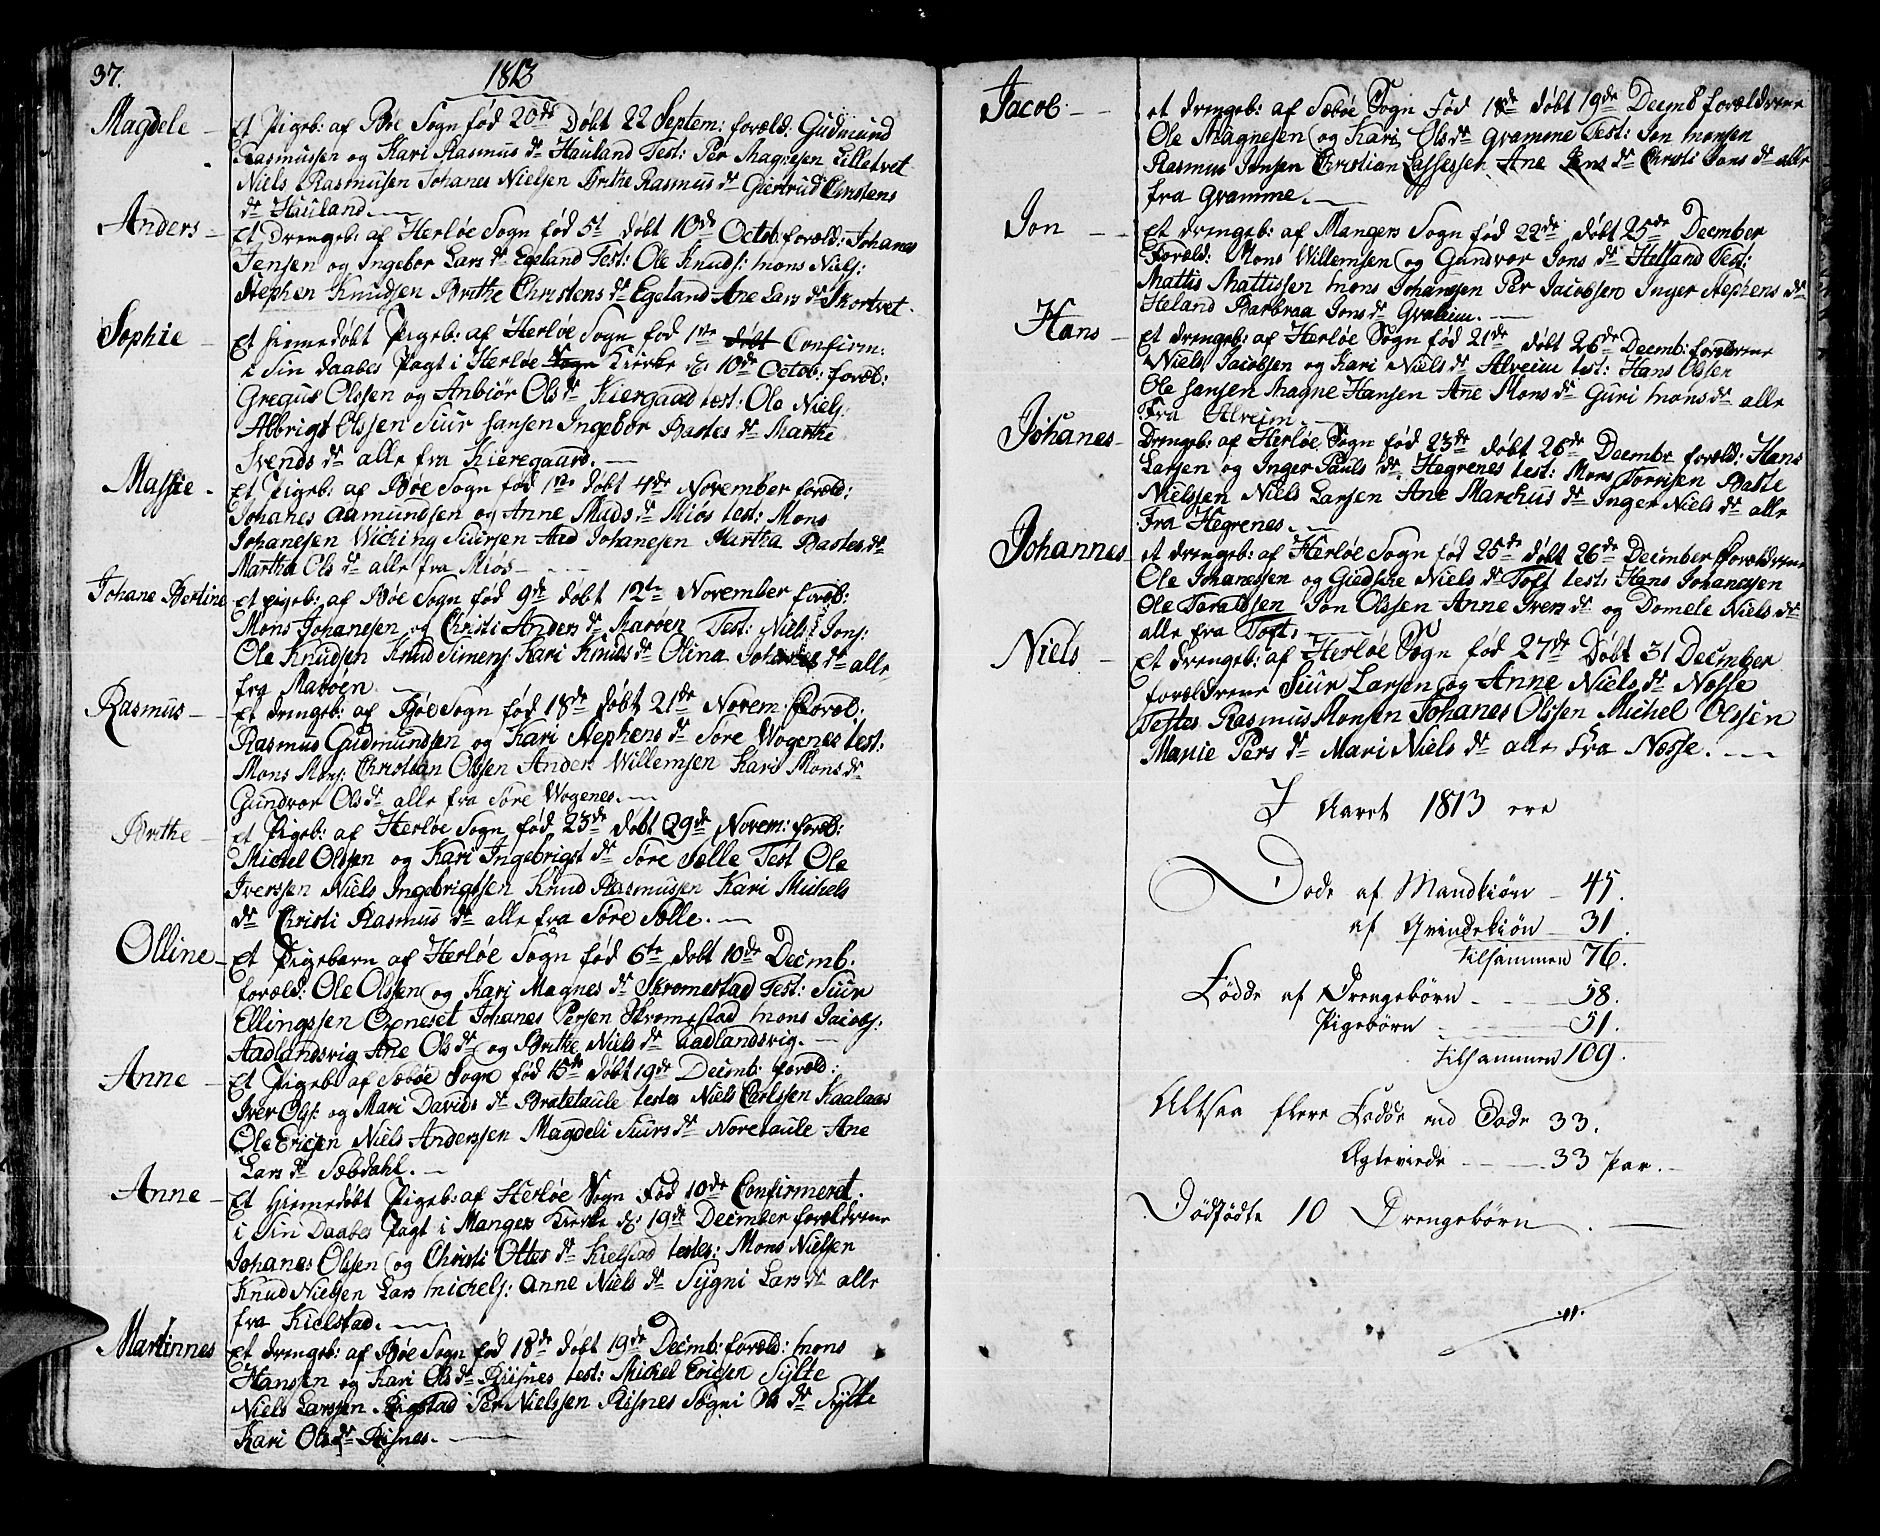 37.
1813
Magdele - Et Pigeb: af Bøe Sogn fød 20de Døbt 22 Septem: foræld: Gudmund
Rasmussen og Kari Rasmus dr Hauland Test: Per Magnesen Lilletvet
Niels Rasmusen Johanes Nielsen Brithe Rasmus dr Giertrud Christens
dr Hauland.
Anders - Et Drengeb: af Herløe Sogn fød 5t døbt 10de Octob: foræld: Johanes
Jensen og Ingebor Lars dr Egeland Test: Ole Knuds: Mons Niels:
Stephen Knudsen Brithe Christens dr Egeland Ane Lars dr Skortvet.
Sophie - Et hiemedøbt Pigeb: af Herløe Sogn fød 1ste døbt Confirm:
i Sin daabes Pagt i Herløe Sogn Kirke d: 10de Octob: foræld:
Gregus Olssen og Anbiør Ols dr Kiergaard test: Ole Niels:
Albrigt Olssen Siur Hansen Ingebor Bastes dr Marthe
Svends dr alle fra Kieregaard.
Massie - Et Pigeb: af Bøe Sogn fød 1ste døbt 4de November foræld:
Johanes Aamundsen og Anne Mads dr Miøs test: Mons
Johanesen Wiching Siursen Aad Johanesen Martha Bastes dr
Martha Ols dr alle fra Miøs
Johane Bertine et pigeb: af Bøe Sogn fød 9de døbt 12te November foræld:
Mons Johanesen og Christi Anders dr Marøen Test: Niels Jons:
Ole Knudsen Knud Simens: Kari Knuds dr Olina Johanes dr alle
fra Marøen
Rasmus - Et drengeb: af Bøe Sogn fød 18de døbt 21de Novem: Foræld:
Rasmus Gudmundsen og Kari Stephens dr Søre Wogenes test:
Mons Mons: Christian Olssen Anders Willemsen Kari Mons dr
Gundvor Ols dr alle fra Søre Wogenes.
Brithe - et Pigeb: af Herløe Sogn fød 23de døbt 29de Novem: foræld:
Michel Olssen og Kari Ingebrigt dr Søre Sælle Test Ole
Iverssen Niels Ingebrigtsen Knud Rasmussen Kari Michels
dr Christi Rasmus dr alle fra Søre Sælle.
Olline - Et Pigebarn af Herløe Sogn fød 6te døbt 10de Decmb.
foræld: Ole Olssen og Kari Magnes dr Skromestad Test: Siur
Ellingssen Oxneset Johanes Persen Skromestad Mons Jacobs:
Aadlandsvig Ane Ols dr og Brithe Niels dr Aadlandsvig.
Anne - Et Pigeb: af Sæbøe Sogn fød 15de døbt 19de Decmb: foræld:
Iver Ols: og Mari Davids dr Bratetaule testes Niels Carlssen Kaalaas
Ole Ericsen Niels Anderssen Magdeli Siurs dr Noretaule Ane
Lars dr Sæbdahl.
Anne - Et Hiemedøbt Pigeb: af Herløe Sogn Fød 10de Confirmeret
i Sin Daabes Pagt i Manger Kirke d: 19de December forældrene
Johanes Olssen og Christi Ottes dr Kielstad testes: Mons Nielsen
Knud Nielsen Lars Michels: Anne Niels dr Sygni Lars dr alle
fra Kielstad.
Martinnes Et drengeb: af Bøe Sogn fød 18de døbt 19de Decmb: foræld: Mons
Hansen og Kari Ols dr Riisnes test: Michel Ericsen Sylte
Niels Larssen Rigstad Per Nielssen Risnes Søgni Ols dr Sylte
Kari Ols dr Risnes.
Jacob - et drengeb: af Sæbøe Sogn Fød 18de døbt 19de Decmb forældrene
Ole Magnesen og Kari Ols dr Gramme Test: Jon Monsen
Rasmus Jonsen Christian Lassesen Ane Jens dr Christi Jons dr alle
fra Gramme.
Jon - et drengeb: af Manger Sogn fød 22de døbt 25de December
Foræld: Mons Willemsen og Gundvor Jons dr Helland Test:
Mattis Mattissen Mons Johansen Per Jacobsen Inger Stephens dr
Heland Barbraa Jons dr Graheim.
Hans - Et drengeb: af Herløe Sogn fød 21de døbt 26de Decemb: forældrene
Niels Jacobsen og Kari Niels dr Alveim test: Hans Olssen
Ole Hansen Magne Hansen Ane Mons dr Guri Mons dr alle
Fra Alveim.
Johanes - Drengeb: af Herløe Sogn fød 23de døbt 26de Decembr foræld: Hans
Larsen og Inger Pauls dr Hegrenes test: Mons Torrisen Baste
Nielssen Niels Larsen Ane Marchus dr Inger Niels dr alle
Fra Hegrenes.
Johannes - et drengeb: af Herløe Sogn fød 25de døbt 26de December Forældrene
Ole Johanessen og Giedske Niels dr Toft test: Hans Johanesen
Ole Taraldsen Jon Olssen Anne Ivers dr og Domele Niels dr
alle fra Toft.
Niels - Et drengeb: af Herløe Sogn fød 27de Døbt 31 December
forældrene Siur Larsen og Anne Niels dr Næsse
Testes Rasmus Monsen Johanes Olssen Michel Olssen
Marie Pers dr Mari Niels dr alle Fra Næsse.
I Aaret 1813 ere
Døde af Mandkiøn - 45.
af Qvindekiøn - 31.
tilsammen 76.
Fødde af Drengebørn - 58.
Pigebørn - 51.
tilsammen 109.
Altsaa flere Fødde end Døde 33.
Ægteviede - 33 Par.
Dødfødte 10 Drengebørn.